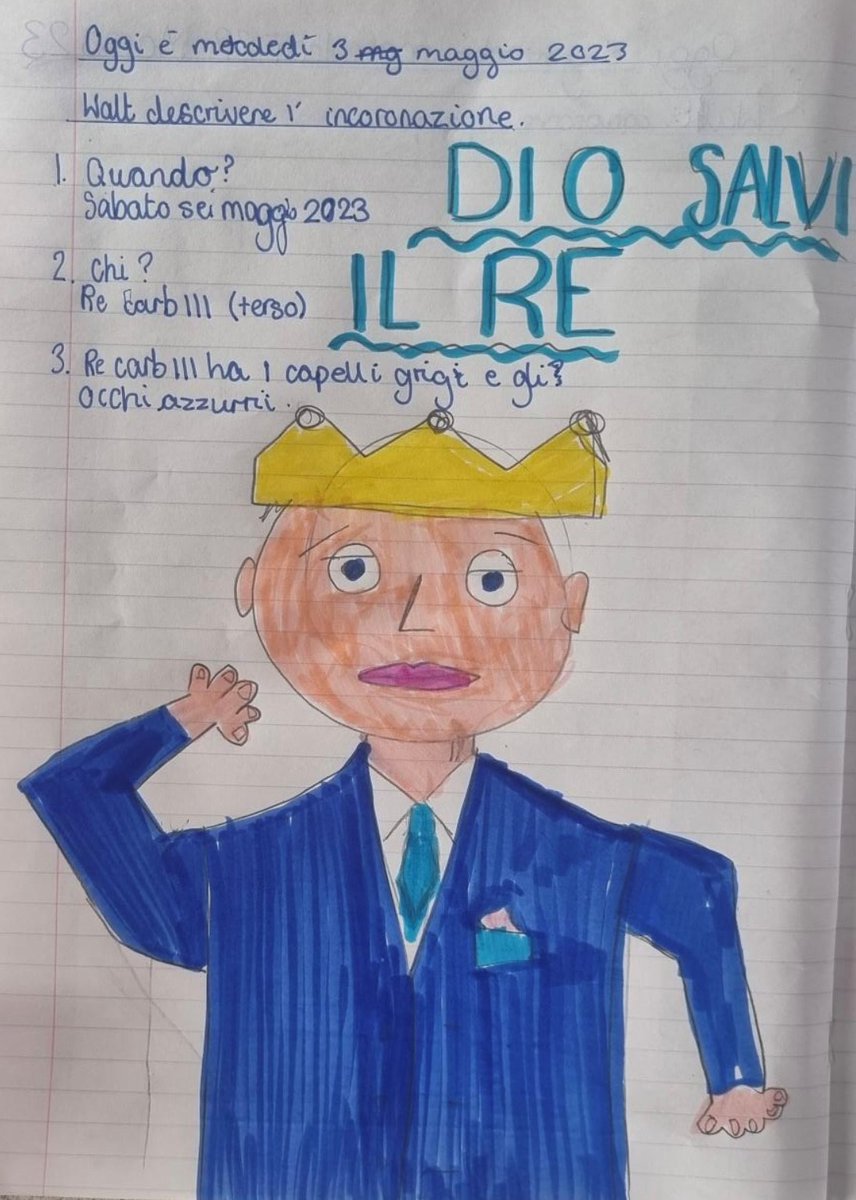 Oggi è mecoledí 3 mg maggio 2023
Walt descrivere l' incoronazione.
1. Quando?
Sabato sei maggio 2023
DIO SALVI
IL RE
2. Chi?
Re Carlo III (terso)
3. Re Carlo III ha i capelli grigi e gli
occhi azzurri.